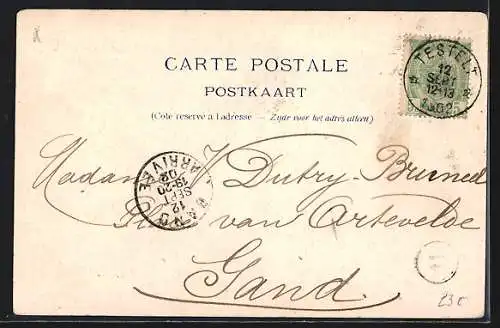 CARTE POSTALE
POSTKAART
(Côté réservé à l'adresse — Zijde voor het adres alleen)
TESTELT
12
SEPT
12-13
1902
Madame V. Dutry-Bruneel
van Artevelde
Gand
GAND
12
SEPT
19-20
02
ARRIVÉE